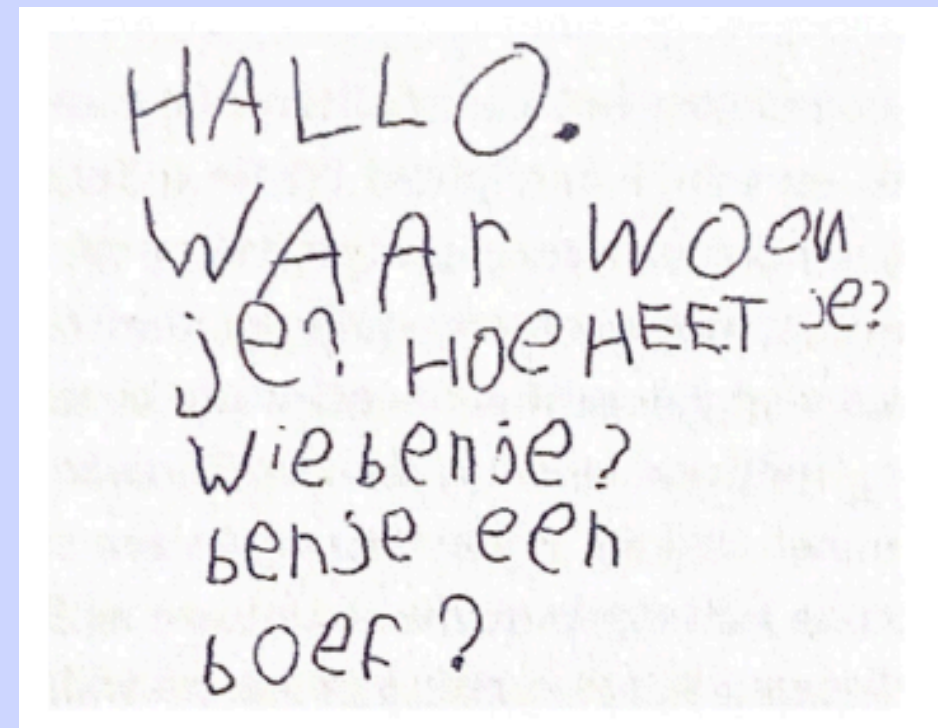 HALLO.
WAAr WOon
je? HOe HEET je?
Wiebenje?
benje een
boef?